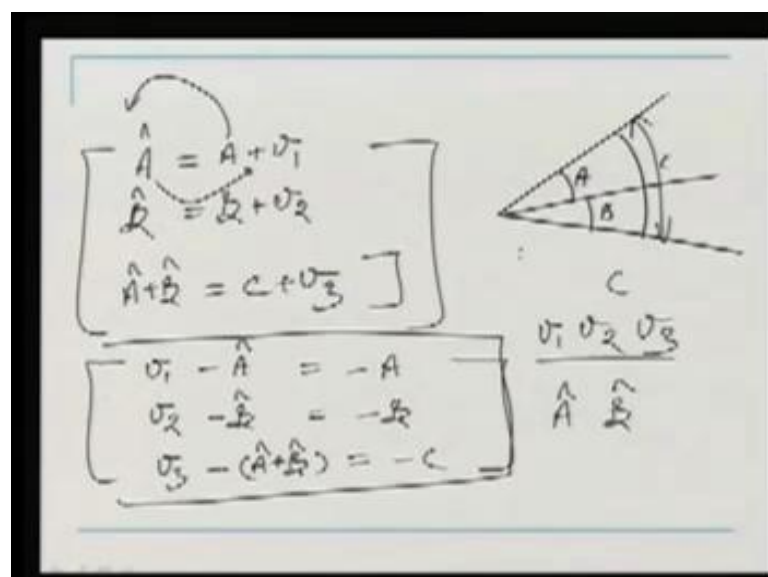 Â = A + v₁
B̂ = B + v₂
Â+B̂ = C + v₃
v₁ - Â = -A
v₂ - B̂ = -B
v₃ - (Â+B̂) = -C
A
B
C
C
v₁ v₂ v₃
Â B̂